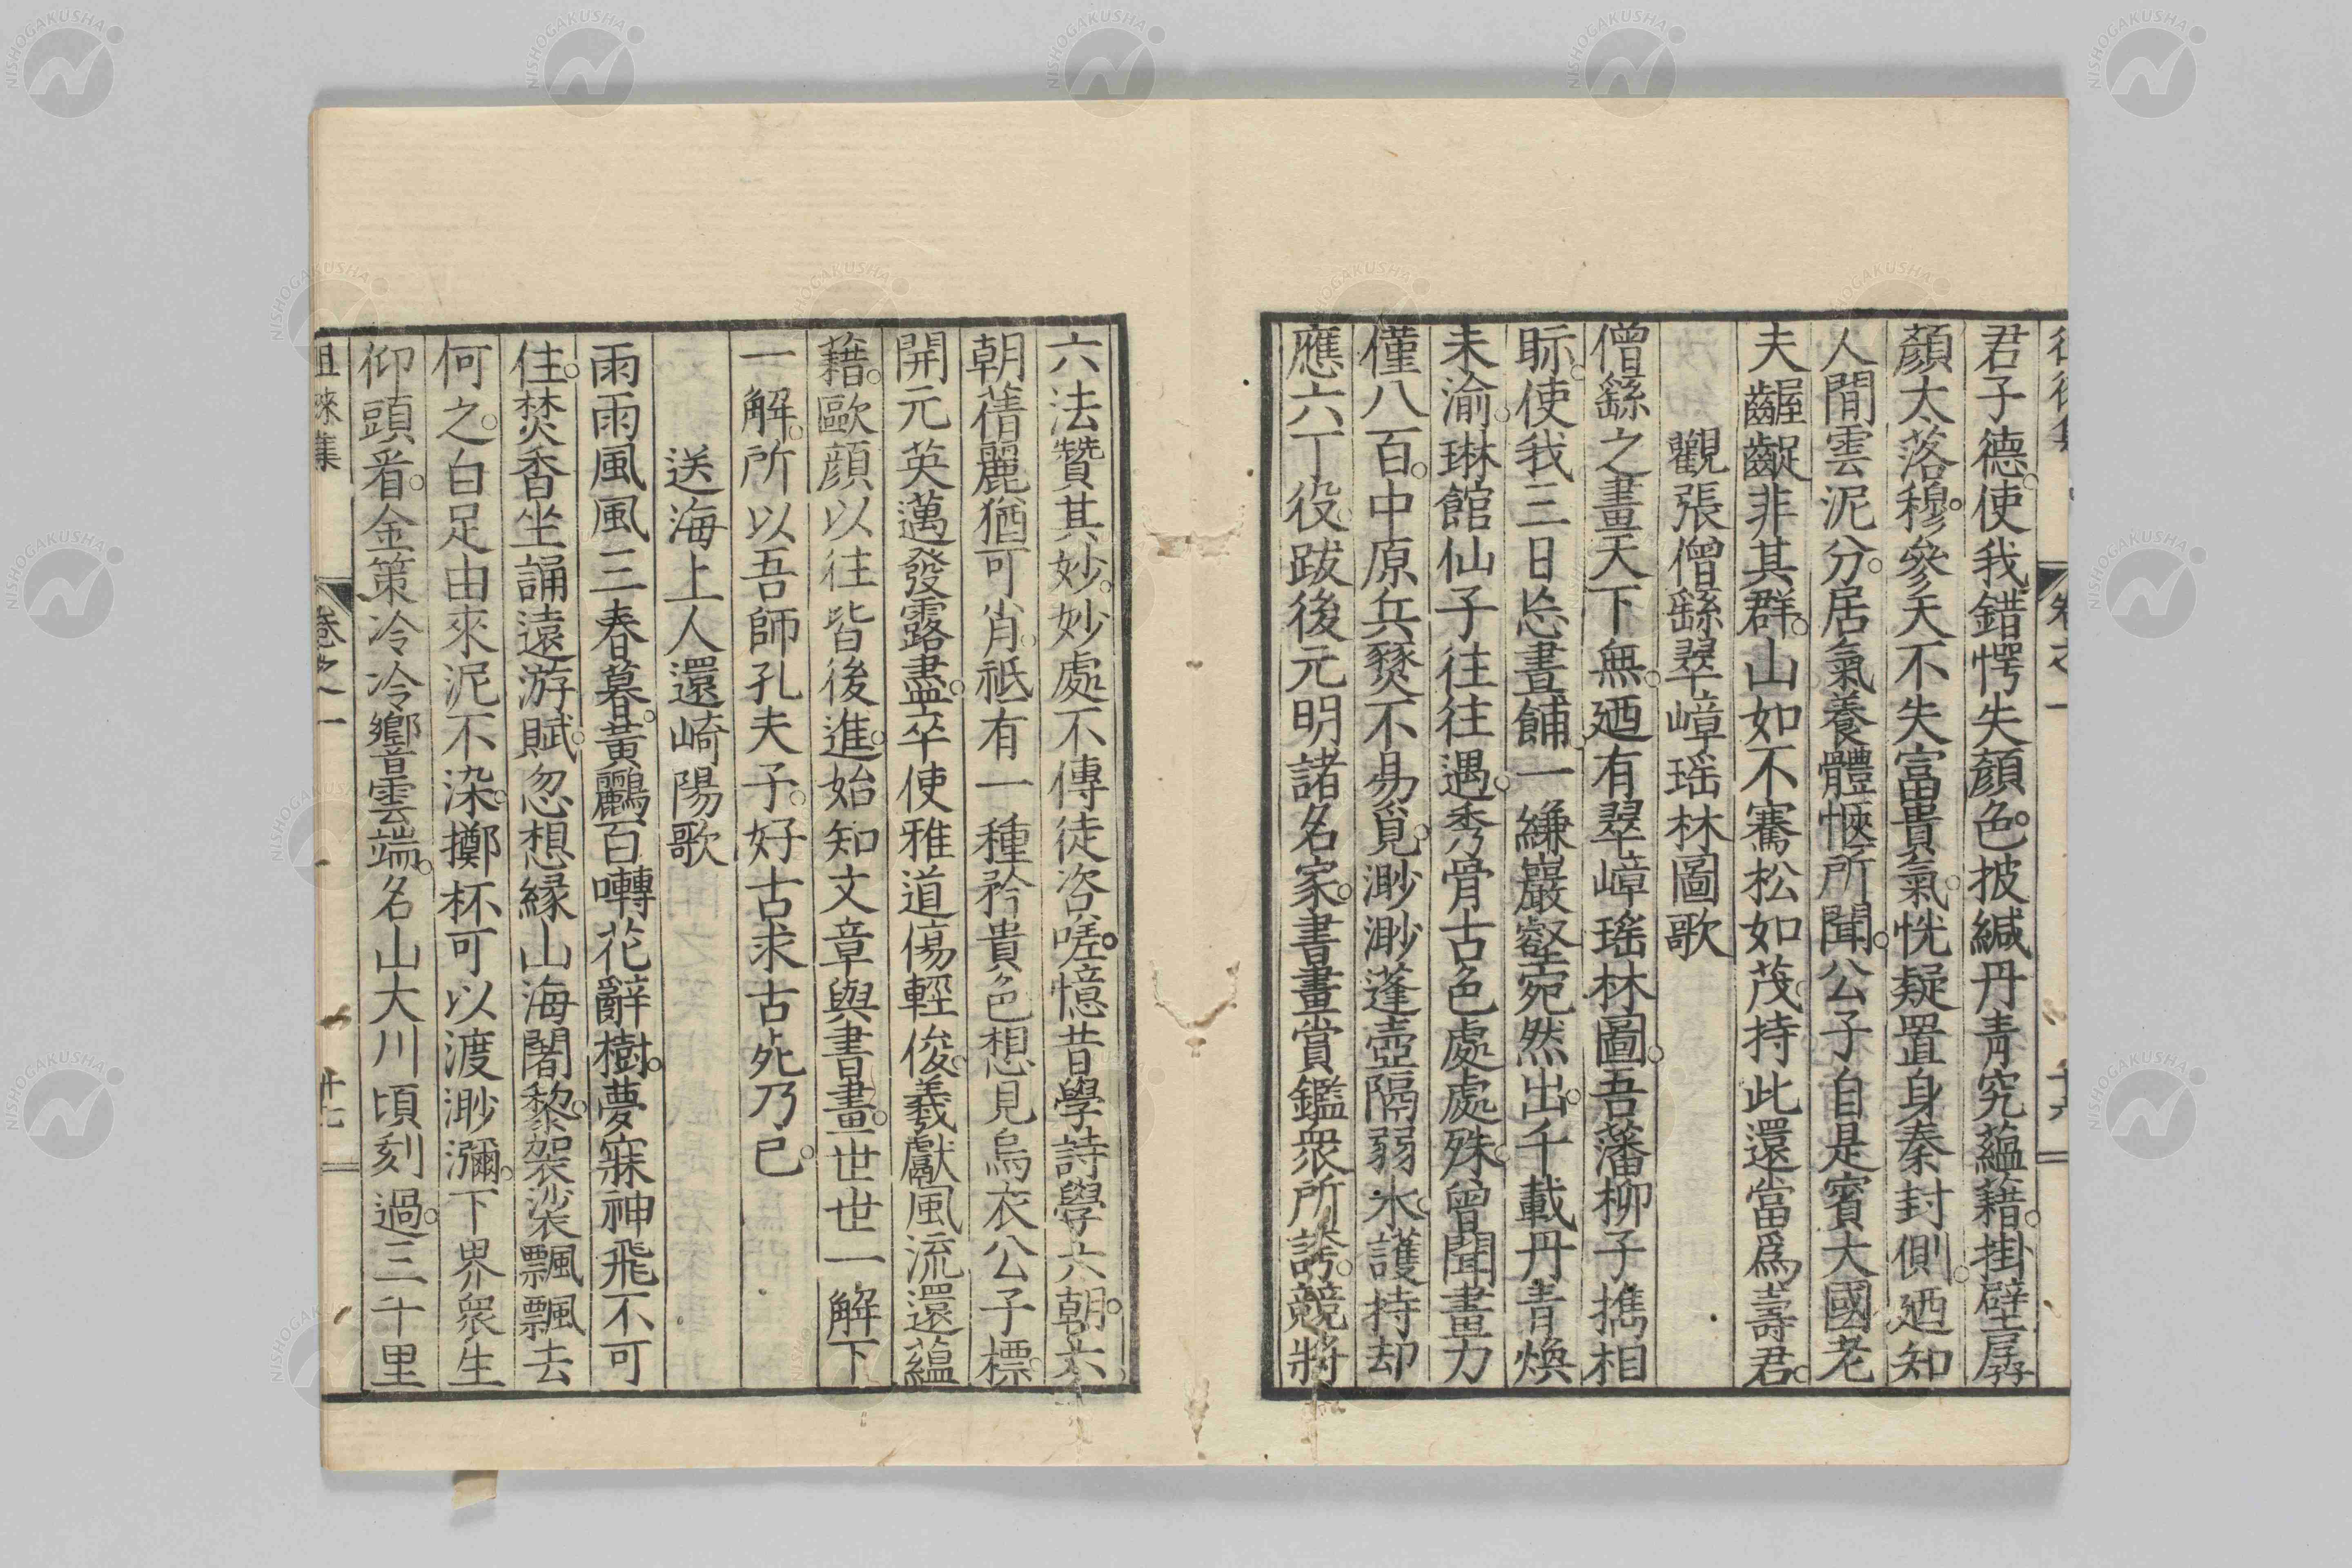 君子德。使我錯愕失顏色。披緘丹青究蘊藉。掛壁孱
顏太落穆。參天不失富貴氣。恍疑置身秦封側。廼知
人間雲泥分。居氣養體愜所聞。公子自是賓大國。老
夫齷齪非其群。山如不騫松如茂。持此還當爲壽君。
觀張僧繇翠嶂瑤林圖歌
僧繇之畫天下無。廼有翠嶂瑤林圖。吾藩柳子攜相
眎。使我三日忘晝餔。一縑巖壑宛然出。千載丹青煥
未渝。琳館仙子往往遇。秀骨古色處處殊。曾聞畫力
僅八百。中原兵燹不易覓。渺渺蓬壺隔弱水。護持却
應六丁役。跋後元明諸名家。書畫賞鑑衆所誇。競將
六法贊其妙。妙處不傳徒咨嗟。憶昔學詩學六朝。六
朝蒨麗猶可肖。祇有一種矜貴色。想見烏衣公子標。
開元英邁發露盡。卒使雅道傷輕俊。羲獻風流還蘊
藉。歐顏以往皆後進。始知文章與書畫。世世一解下
一解。所以吾師孔夫子。好古求古死乃已。
送海上人還崎陽歌
雨雨風風三春暮。黃鸝百囀花辭樹。夢寐神飛不可
住。焚香坐誦遠游賦。忽想縁山海闍黎。袈裟飄飄去
何之。白足由來泥不染。擲杯可以渡渺瀰。下界衆生
仰頭看。金策冷冷響雲端。名山大川頃刻過。三千里
徂徠集 卷之一 十七